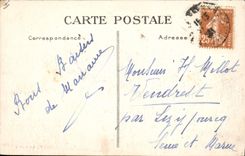 CARTE POSTALE
Correspondance
Adresse
Bons Baisers
de
Monsieur Mellot
Vendrest
par Lizy s/ourcq
Seine et Marne